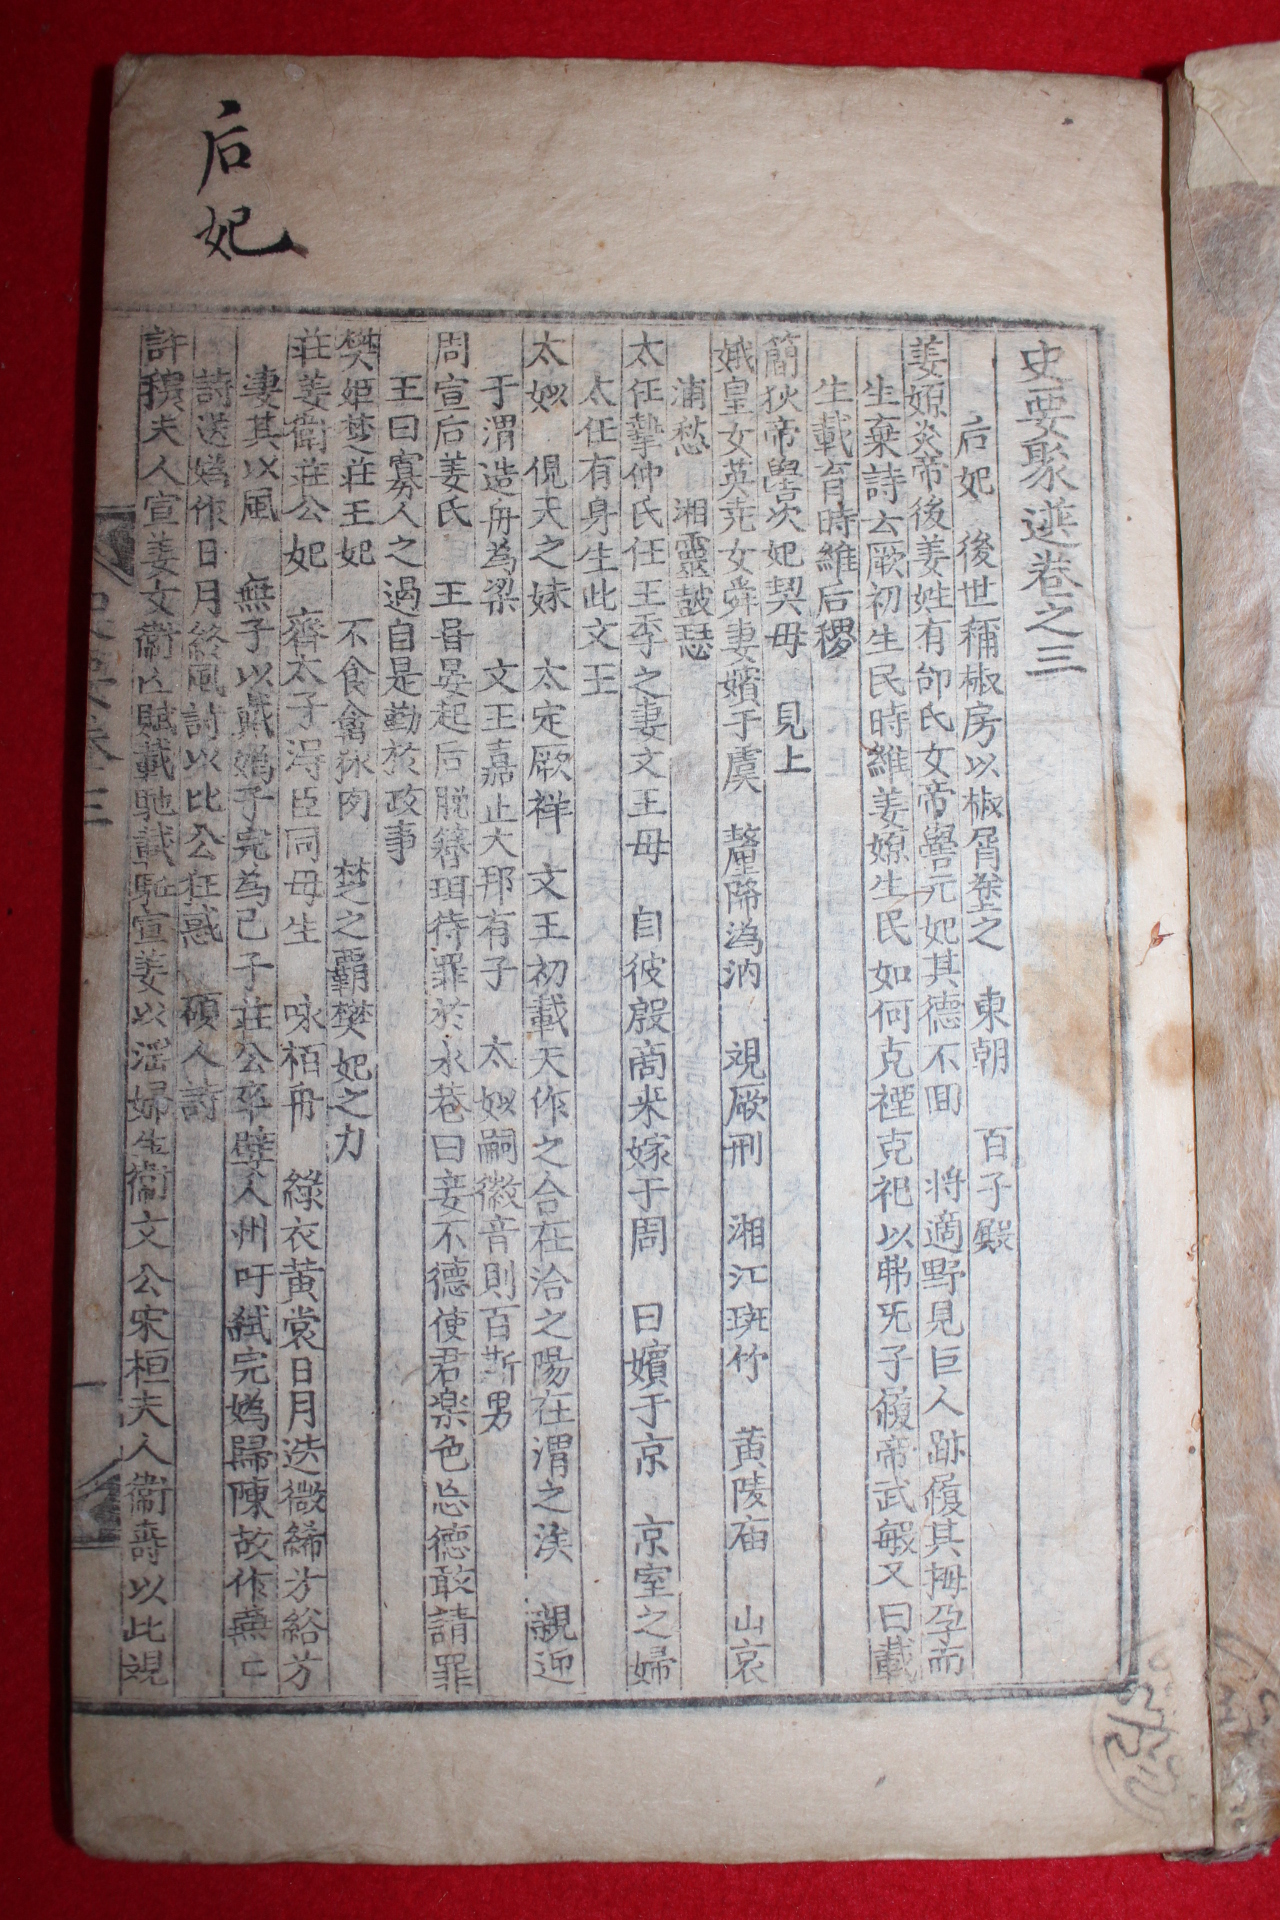 后妃
史要聚選卷之三
后妃 後世稱椒房以椒屑塗之 東朝 百子殿
姜嫄炎帝後姜姓有邰氏女帝嚳元妃其德不回 將適野見巨人跡履其拇孕而
生棄詩云厥初生民時維姜嫄生民如何克禋克祀以弗旡子履帝武敏又曰載
生載育時維后稷
簡狄帝嚳次妃契母 見上
娥皇女英堯女舜妻嬪于虞 釐降溈汭 觀厥刑 湘江斑竹 黃陵庙 山哀
浦愁 湘靈鼓瑟
太任摯仲氏任王季之妻文王母 自彼殷商來嫁于周 曰嬪于京 京室之婦
太任有身生此文王
太姒 俔天之妹 太定厥祥 文王初載天作之合在洽之陽在渭之涘 親迎
于渭造舟為梁 文王嘉止大邦有子 太姒嗣徽音則百斯男
周宣后姜氏 王甞晏起后脫簪珥待罪於永巷曰妾不德使君楽色忘德敢請罪
王曰寡人之過自是勤於政事
樊姬楚莊王妃 不食禽獸肉 楚之覇樊妃之力
莊姜衛莊公妃 齊太子淂臣同母生 咏栢舟 綠衣黃裳日月迭微絺兮綌兮
淒其以風 無子以戴媯子完為己子莊公卒嬖人州吁弑完媯歸陳故作燕
詩送媯作日月終風詩以比公狂惑 碩人詩
許穆夫人宣姜女衛亡賦載馳試馳宣姜以淫婦生衞文公宋桓夫人衞壽以此視
三
一